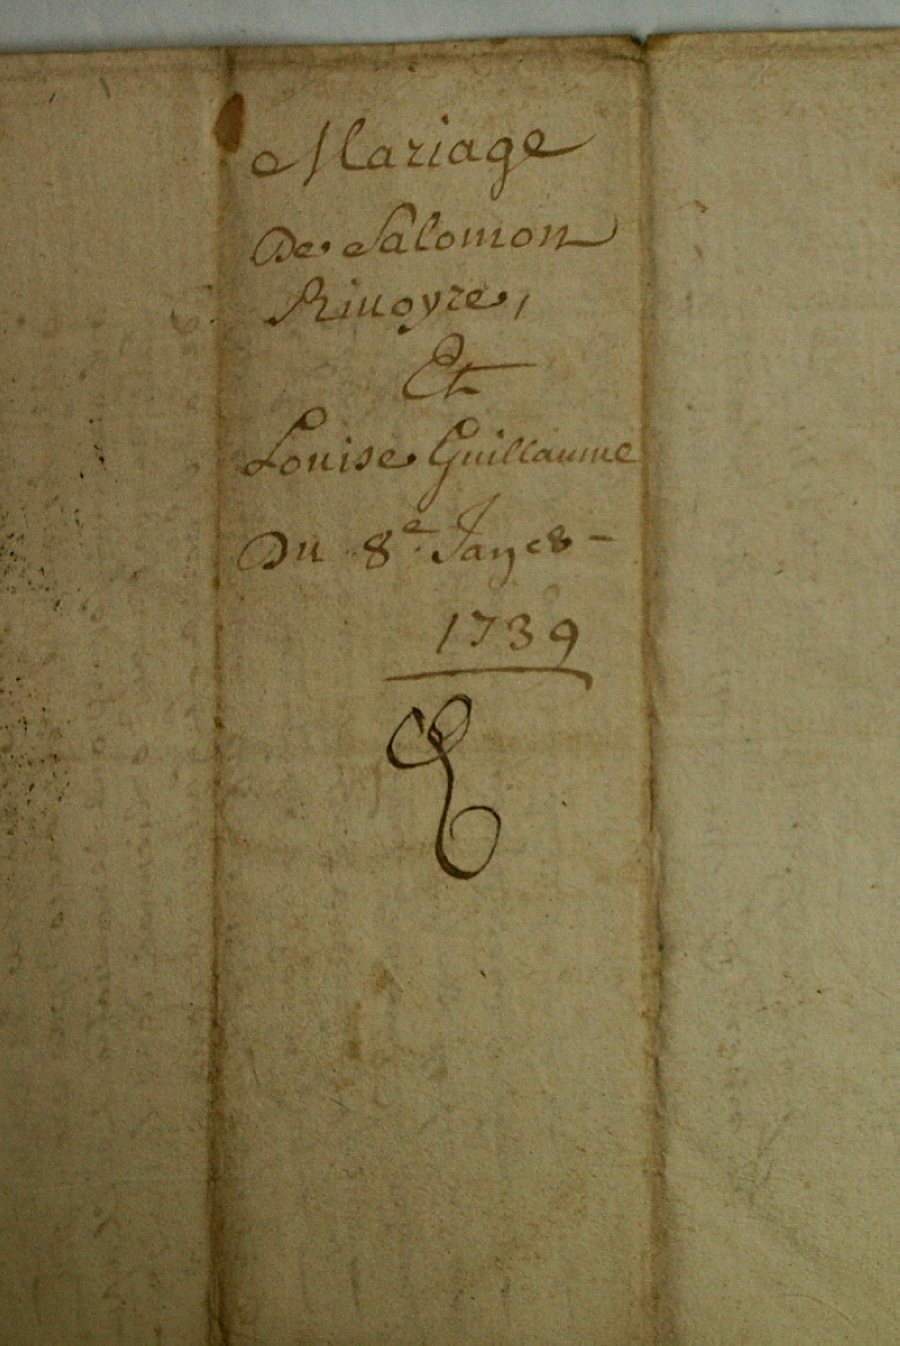 Mariage
De Salomon
Riuoyre,
Et
Louise Guillaume
Du 8e
1739